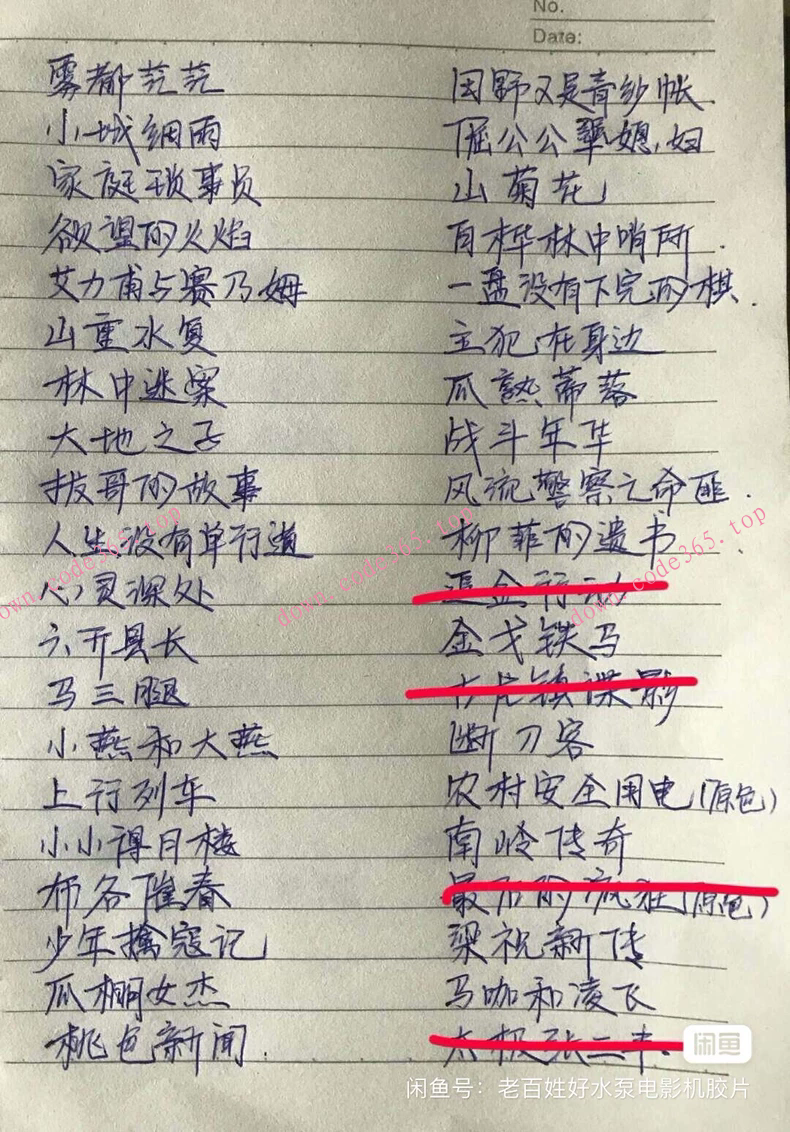 No.
Date:
雾都茫茫
小城细雨
家庭琐事员
欲望的火焰
艾力甫与赛乃姆
山重水复
林中迷案
大地之子
拔哥的故事
人生没有单行道
心灵深处
六斤县长
马三腿
小燕和大燕
上行列车
小小得月楼
布谷催春
少年擒寇记
瓜棚女杰
桃色新闻
田野又是青纱帐
倔公公犟媳妇
山菊花
白桦林中哨所
一盘没有下完的棋
主犯在身边
瓜熟蒂落
战斗年华
风流警察亡命匪
柳菲的遗书
追金行动
金戈铁马
古屯镇谍影
断刀客
农村安全用电(原色)
南岭传奇
最后的疯狂(原色)
梁祝新传
马咖和凌飞
太极张三丰
down.code365.top
down.code365.top
down.code365.top
闲鱼
闲鱼号：老百姓好水泵电影机胶片